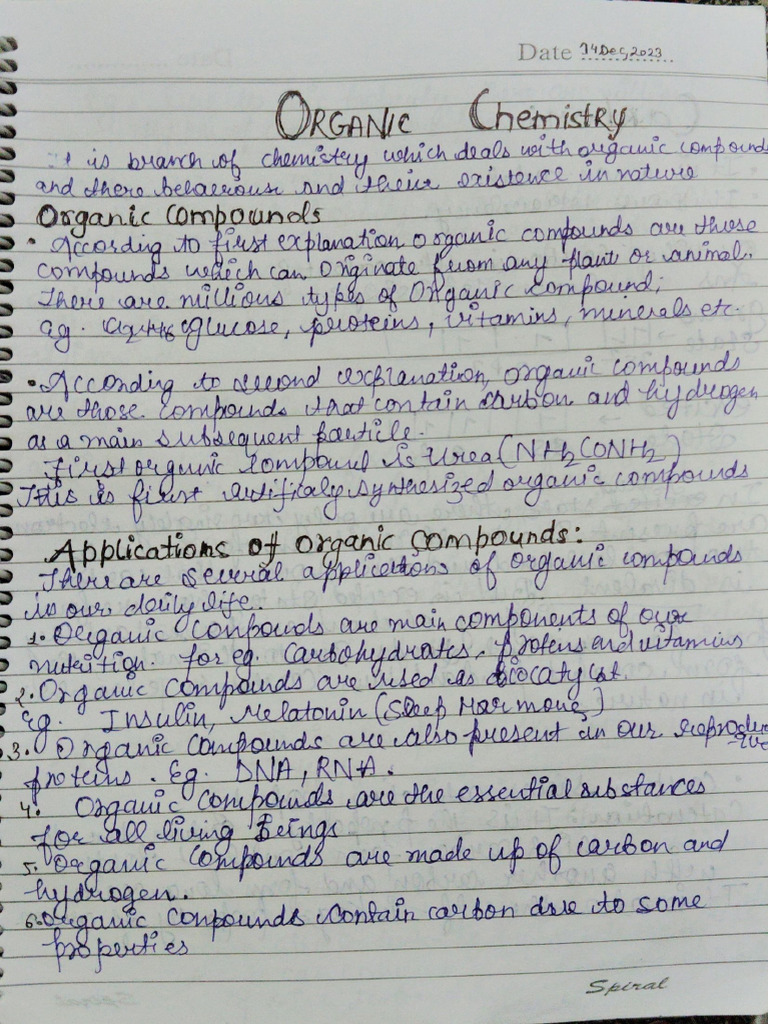 Date 14 Dec, 2023
ORGANIC Chemistry
It is branch of chemistry which deals with organic compounds
and there behaviour and their existence in nature
Organic Compounds
• According to first explanation organic compounds are those
compounds which can originate from any plant or animal.
There are millions types of Organic compound;
eg. glucose, proteins, vitamins, minerals etc.
• According to second explanation, organic compounds
are those compounds that contain carbon and hydrogen
as a main subsequent particle.
First organic compound is Urea (NH2CONH2)
This is first artificaly synthesized organic compounds
Applications of organic compounds:
There are several applications of organic compounds
in our daily life.
1. Organic compounds are main components of our
nutrition. for eg. Carbohydrates, proteins and vitamins
2. Organic compounds are used as biocatylst.
Eg. Insulin, Melatonin (Sleep Harmone)
3. Organic compounds are also present in our reproduc
-tive
proteins. Eg. DNA, RNA.
4. Organic compounds are the essential substances
for all living beings
5. Organic compounds are made up of carbon and
hydrogen.
6. Organic compounds contain carbon due to some
properties
Spiral